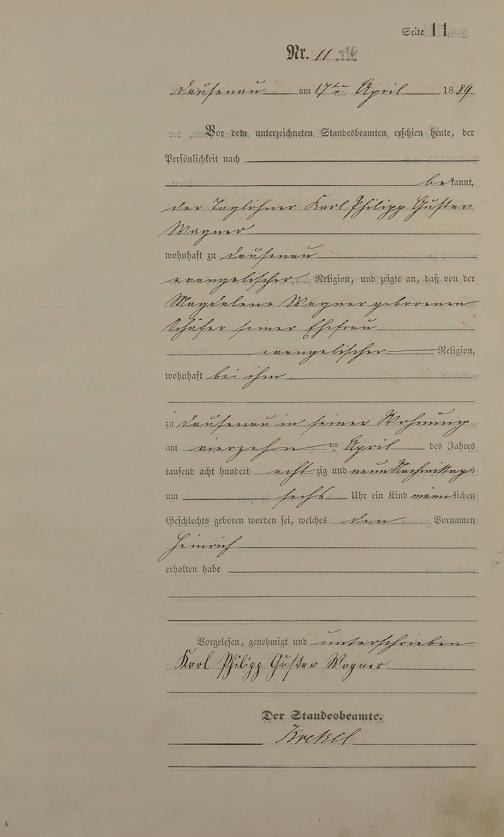 Seite 11
Nr. 11
Dausenau am 17ten April 1889
Vor dem unterzeichneten Standesbeamten erschien heute, der
Persönlichkeit nach
bekannt,
der Taglöhner Karl Philipp Gustav
Wagner
wohnhaft zu Dausenau
evangelischer Religion, und zeigte an, daß von der
Magdalene Wagner geborenen
Schäfer seiner Ehefrau
evangelischer Religion,
wohnhaft bei ihm
zu Dausenau in seiner Wohnung
am vierzehn ten April des Jahres
tausend acht hundert acht zig und neun Nachmittags
um sechs Uhr ein Kind männlichen
Geschlechts geboren worden sei, welches den Vornamen
Heinrich
erhalten habe
Vorgelesen, genehmigt und unterschrieben
Karl Philipp Gustav Wagner
Der Standesbeamte.
Krekel
A.